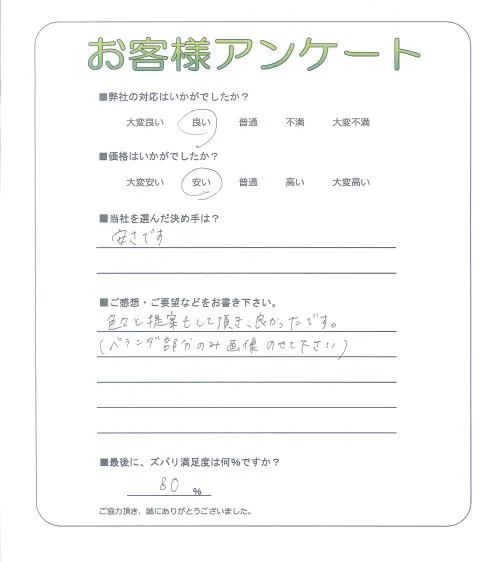 お客様アンケート
■弊社の対応はいかがでしたか？
大変良い 良い 普通 不満 大変不満
■価格はいかがでしたか？
大変安い 安い 普通 高い 大変高い
■当社を選んだ決め手は？
安さです
■ご感想・ご要望などをお書き下さい。
色々と提案もして頂き、良かったです。
(ベランダ部分のみ画像のせて下さい)
■最後に、ズバリ満足度は何%ですか？
80 %
ご協力頂き、誠にありがとうございました。